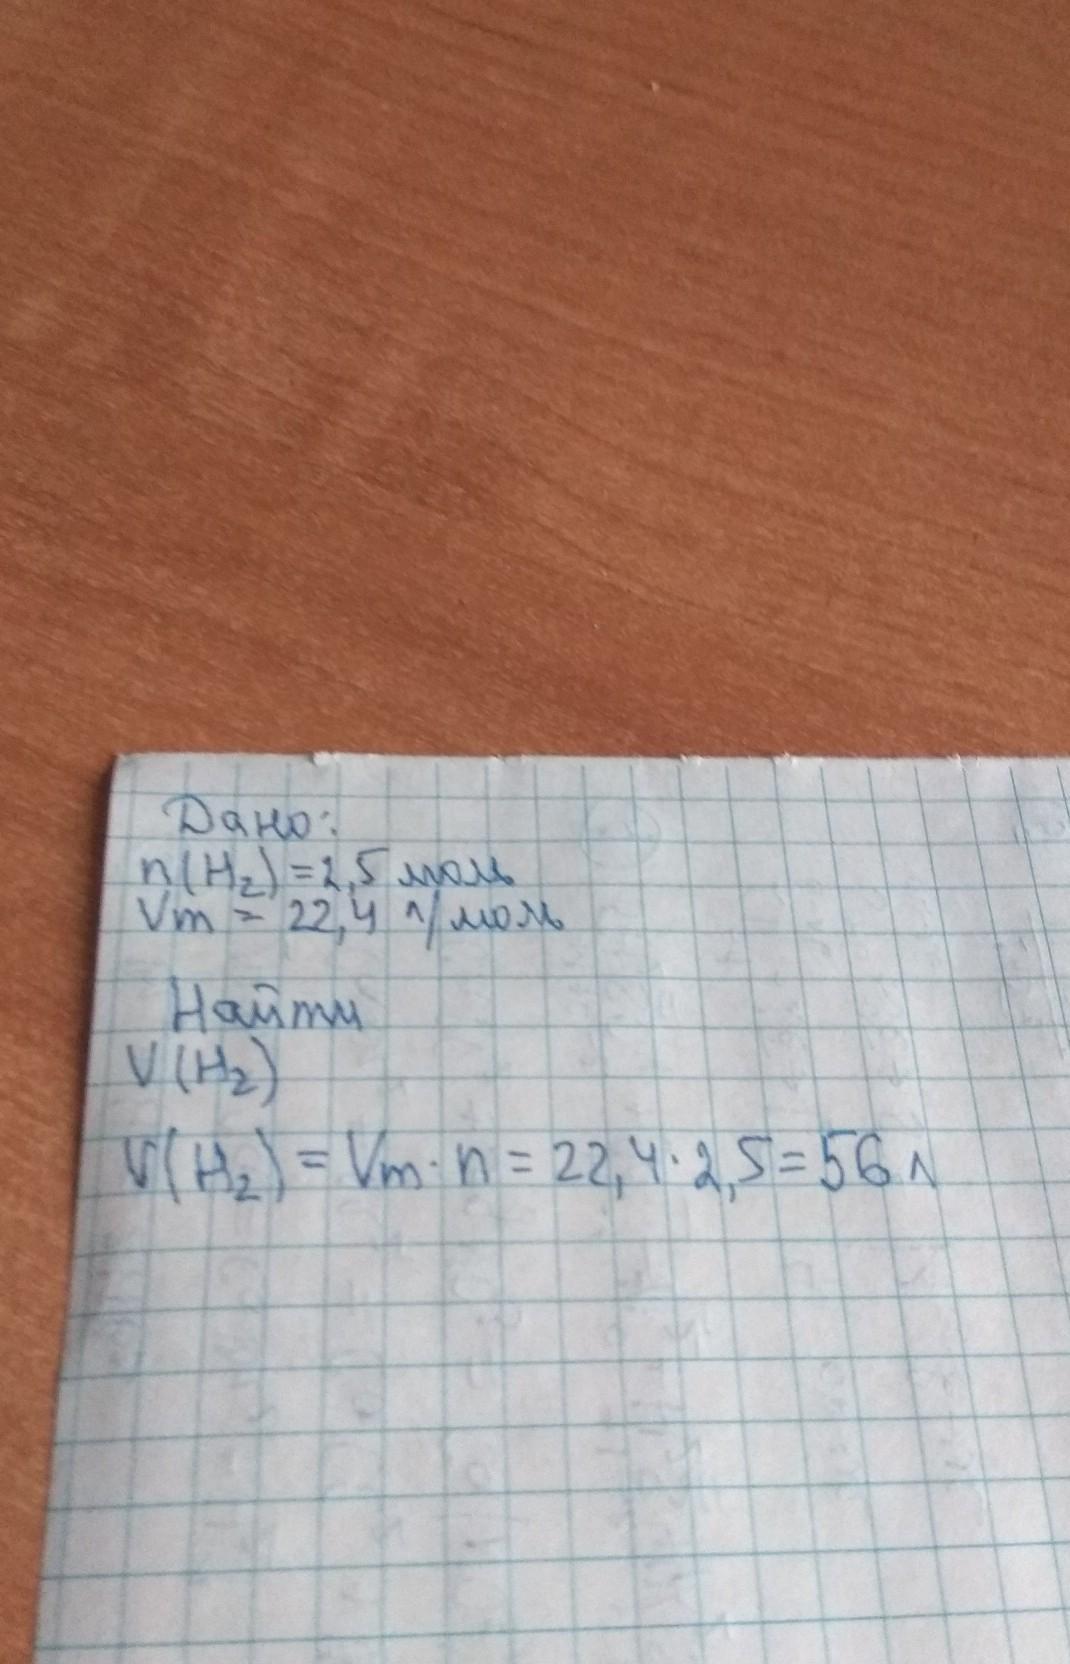 Дано:
n(H₂) = 2,5 моль
Vm = 22,4 л/моль
Найти
V(H₂)
V(H₂) = Vm · n = 22,4 · 2,5 = 56 л